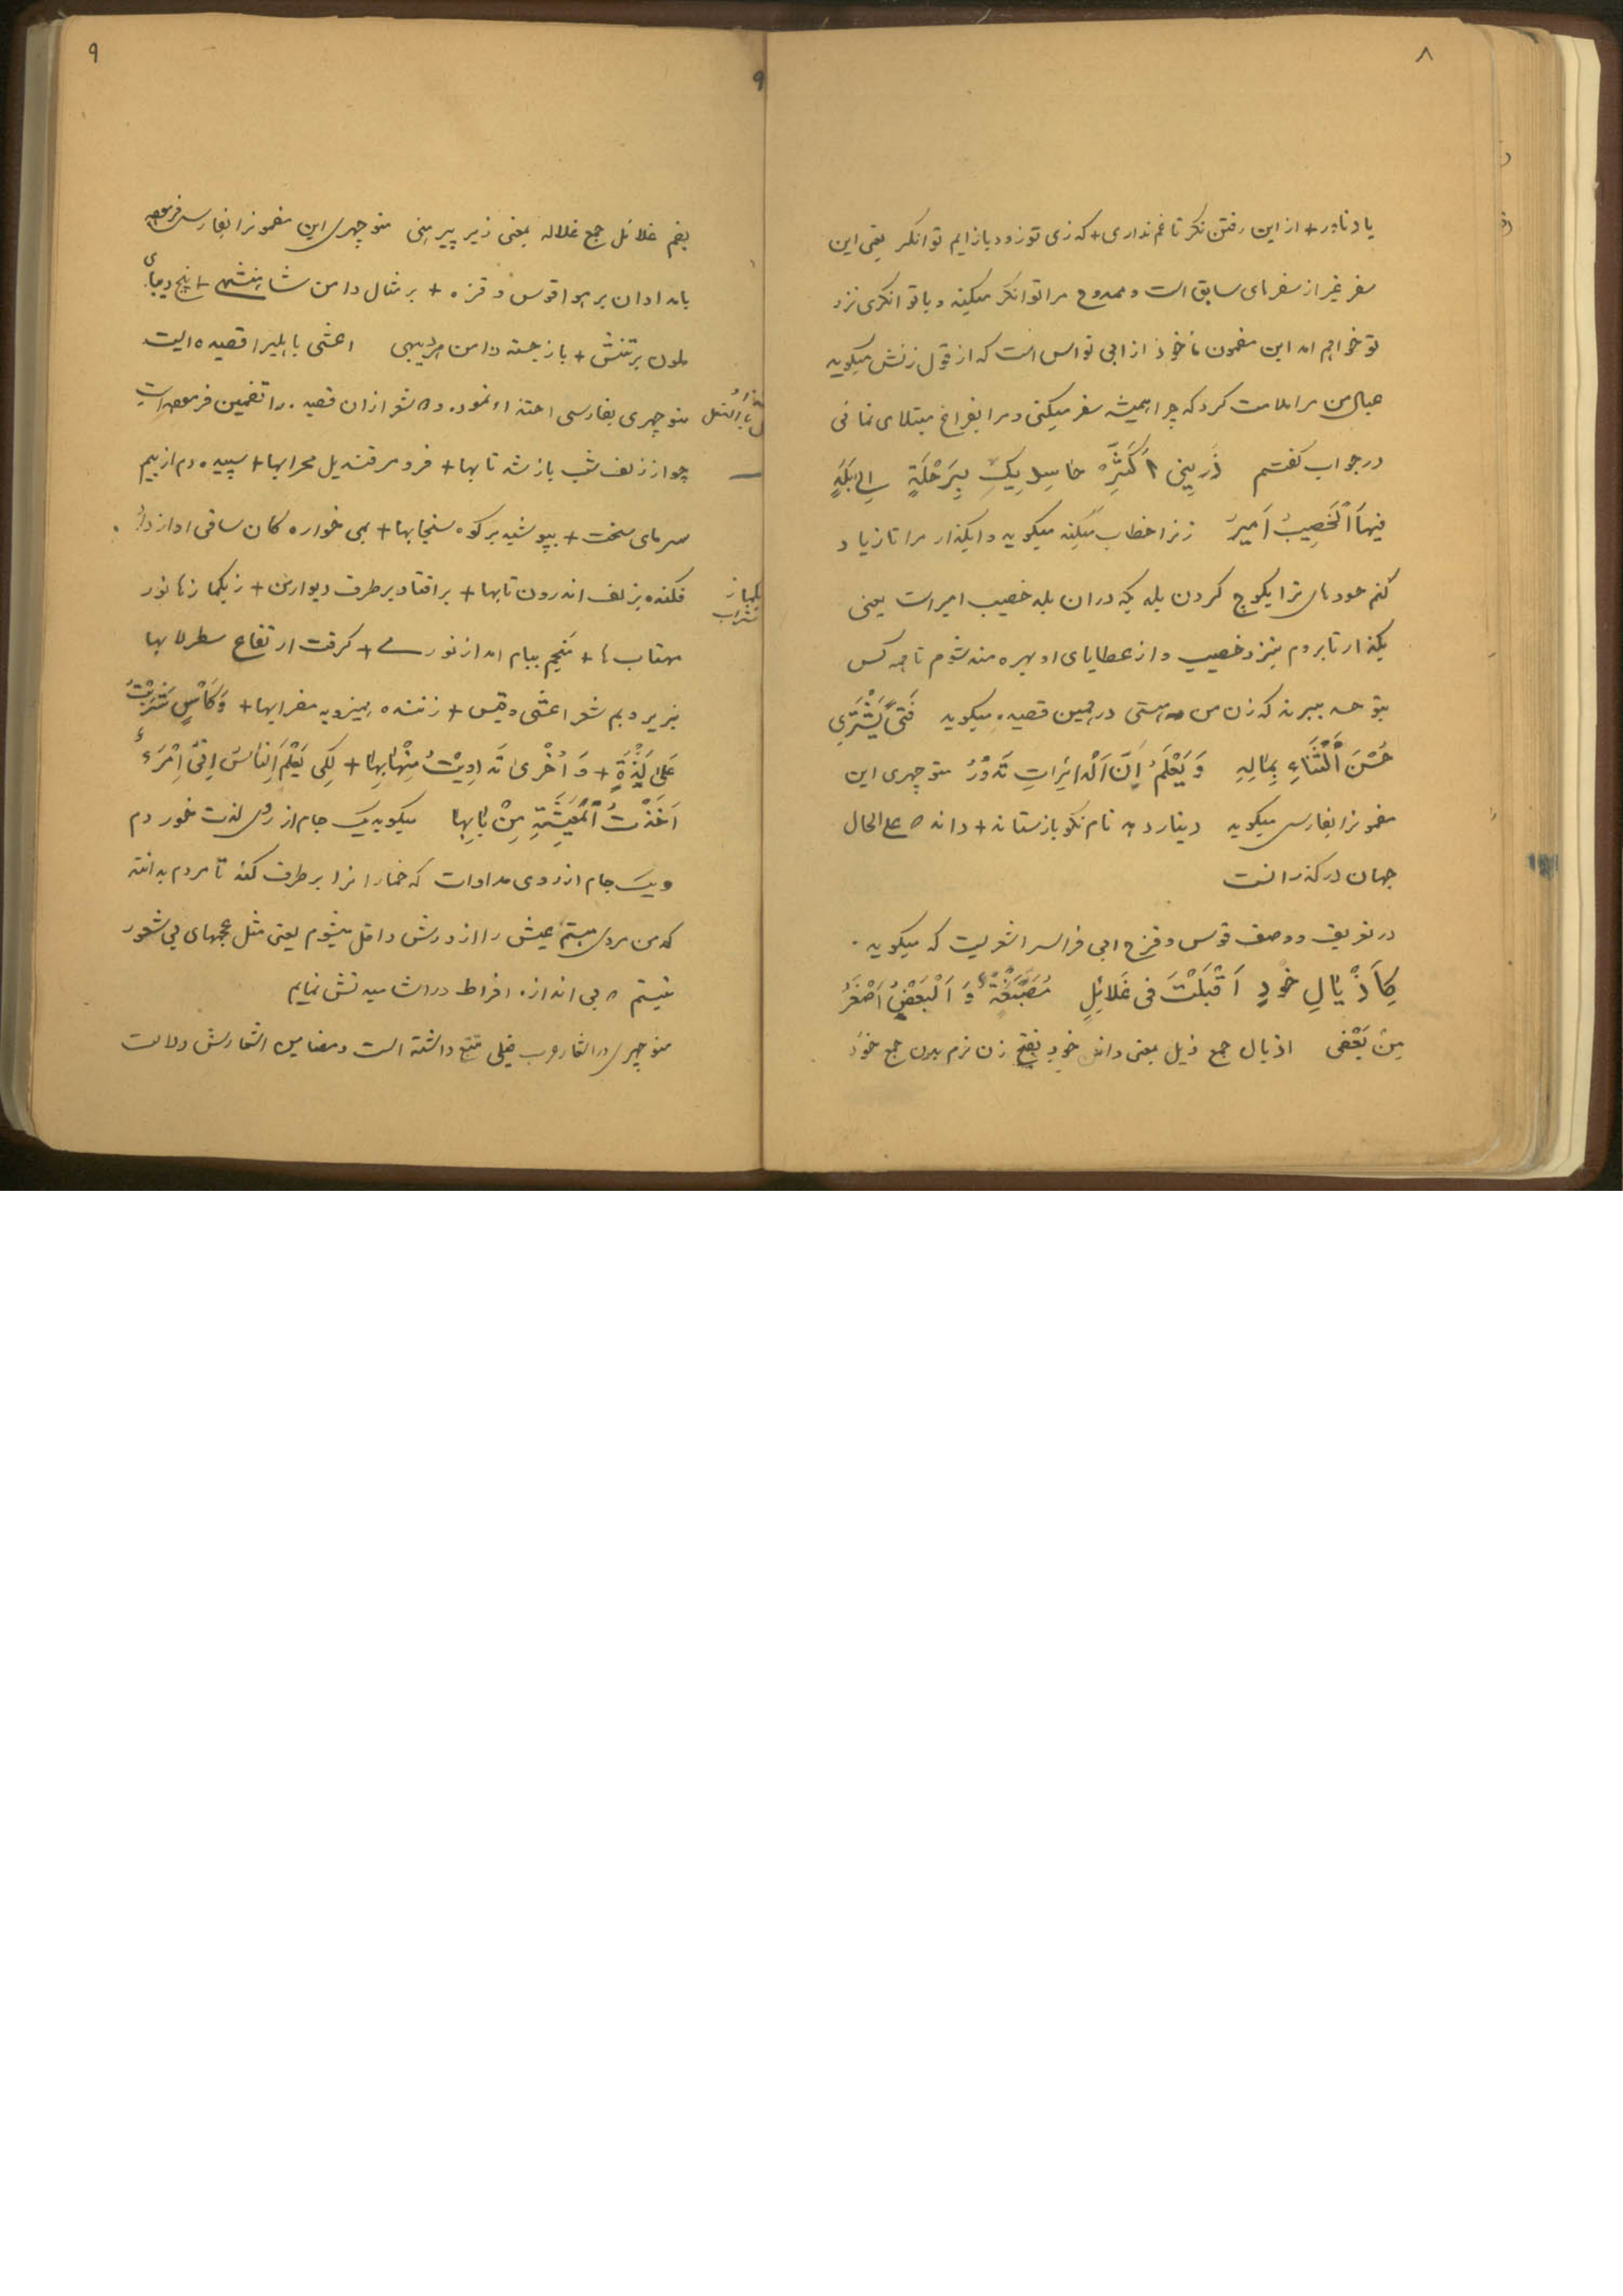 ۸
یاد ناور + از این رفتن نگر تا غم نداری + که زی تو زود بازایم توانگر یعنی این
سفر غیر از سفرهای سابق است و ممدوح مرا توانگر میکند و با توانگری نزد
تو خواهم امد این مضمون ماخوذ از ابی نواس است که از قول زنش میگوید
عیال من مرا ملامت کرد که چرا همیشه سفر میکنی و مرا بفراغ مبتلا می نمائی
در جواب گفتم ذَرینی اُکَثِّر حاسِدیکِ بِرَحْلَةٍ اِلی بَلَدٍ
فیهَا اَلْخَصِیبُ اَمیرُ زنرا خطاب میکند میگوید وابگذار مرا تا زیاد
کنم حسودهای ترا بکوچ کردن ببلدیکه در ان بلد خصیب امیر است یعنی
بگذار تا بروم بنزد خصیب و از عطایای او بهره مند شوم تا همه کس
بتو حسد ببرند که زن من هستی در همین قصیده میگوید فَتیً یَشْتَرِی
حُسْنَ اَلْثَّنَاءِ بِمٰالِهِ وَ یَعْلَمُ اِنَّ اَلْدائِرٰاتِ تَدُوْرُ منوچهری این
مضمونرا بفارسی میگوید دینار دهد نام نکو باز ستاند + داند که علی الحال
جهان در گذرانست
در تعریف و وصف قوس و قزح ابی فراس را شعریست که میگوید
کِاَذْیٰالِ خُودٍ اَقْبَلَتْ فی غَلائِلٍ مُصَبَّغَةٌ وَ اَلْبَعْضُ اَصْغَرُ
مِنْ بَعْضٍ اذیال جمع ذیل بمعنی دامن خود بفتح زن نرم بدن جمع خُود
۹
۹
بضم غلائل جمع غلاله بمعنی زیر پیرهنی منوچهری این مضمونرا بفارسی فرموده
بامدادان بر هوا قوس و قزه + بر مثال دامن شاهنشهی + پنج دیبای
ملون بر تنش + باز جسته دامن هر دیبهی اعشی باهلیرا قصیده ایست
منوچهری بفارسی احتذا او نموده و شعر از ان قصیده را تضمین فرموده است
چو از زلف شب باز شد تابها + فرو مرد قندیل محرابها + سپیده دم از بیم
سرمای سخت + بپوشید بر کوه سنجابها + بمی خوارگان ساقی اواز داد
یکماز
شراب
فکنده بزلف اندرون تابها + برافتاد بر طرف دیوار من + ز یکمازها نور
مهتاب ها + منجم ببام امد از نور می + گرفت ارتفاع سطرلابها
بزیر و بم شعر اعشی و قیس + زننده همیزد به مضرابها + وَ کَأْسٍ شَرِبْتُ
عَلیٰ لَذَّةٍ + وَ اُخْریٰ تَداوَیْتُ مِنْهٰا بِهٰا + لِکَی یَعْلَمَ اِلنّاسُ اِنّی اِمْرَءٌ
اَخَذْتُ اَلْمَعیٖشَةِ مِنْ بٰابِهٰا میگوید یک جام از روی لذت خوردم
و یک جام از روی مداوات که خمار انرا بر طرف کند تا مردم بدانند
که من مردی هستم عیش را از درش داخل میشوم یعنی مثل عجمهای بی شعور
نیستم که بی اندازه افراط در اشامیدنش نمایم
منوچهری در اشعار عرب خیلی تتبع داشته است و مضامین اشعارش دلالت